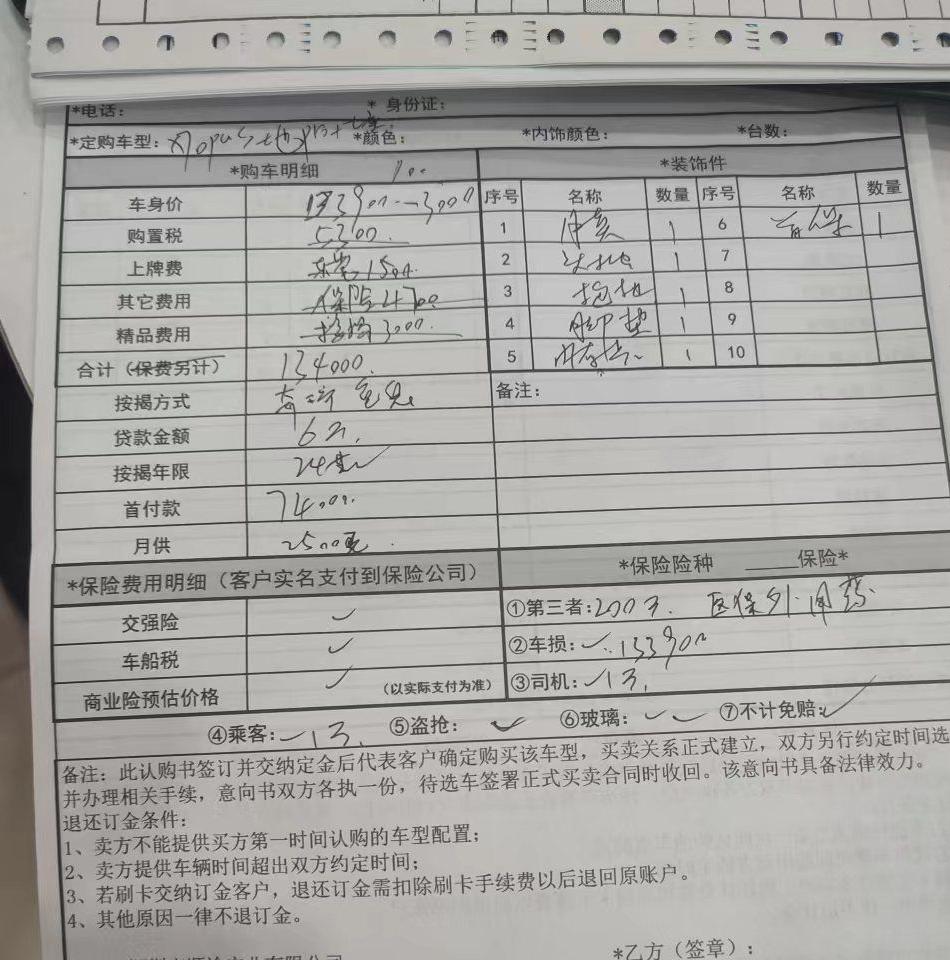 *电话： * 身份证：
*定购车型： *颜色： *内饰颜色： *台数：
*购车明细 *装饰件
车身价 133900--3000 序号 名称 数量 序号 名称 数量
购置税 5300. 1 1 6 1
上牌费 1500. 2 1 7
其它费用 保险4700 3 1 8
精品费用 3000. 4 脚垫 1 9
合计（保费另计） 134000. 5 1 10
按揭方式 备注：
贷款金额 6万.
按揭年限 24
首付款 74000.
月供 2500元.
*保险费用明细（客户实名支付到保险公司） *保险险种 ____保险*
交强险 ✓ ①第三者：200万. 医保外用药.
车船税 ✓ ②车损：✓133900
商业险预估价格 ✓ （以实际支付为准） ③司机：✓1万.
④乘客：✓1万. ⑤盗抢：✓ ⑥玻璃：✓✓ ⑦不计免赔：✓
备注：此认购书签订并交纳定金后代表客户确定购买该车型，买卖关系正式建立，双方另行约定时间选
并办理相关手续，意向书双方各执一份，待选车签署正式买卖合同时收回。该意向书具备法律效力。
退还订金条件：
1、卖方不能提供买方第一时间认购的车型配置；
2、卖方提供车辆时间超出双方约定时间；
3、若刷卡交纳订金客户，退还订金需扣除刷卡手续费以后退回原账户。
4、其他原因一律不退订金。
*乙方（签章）：